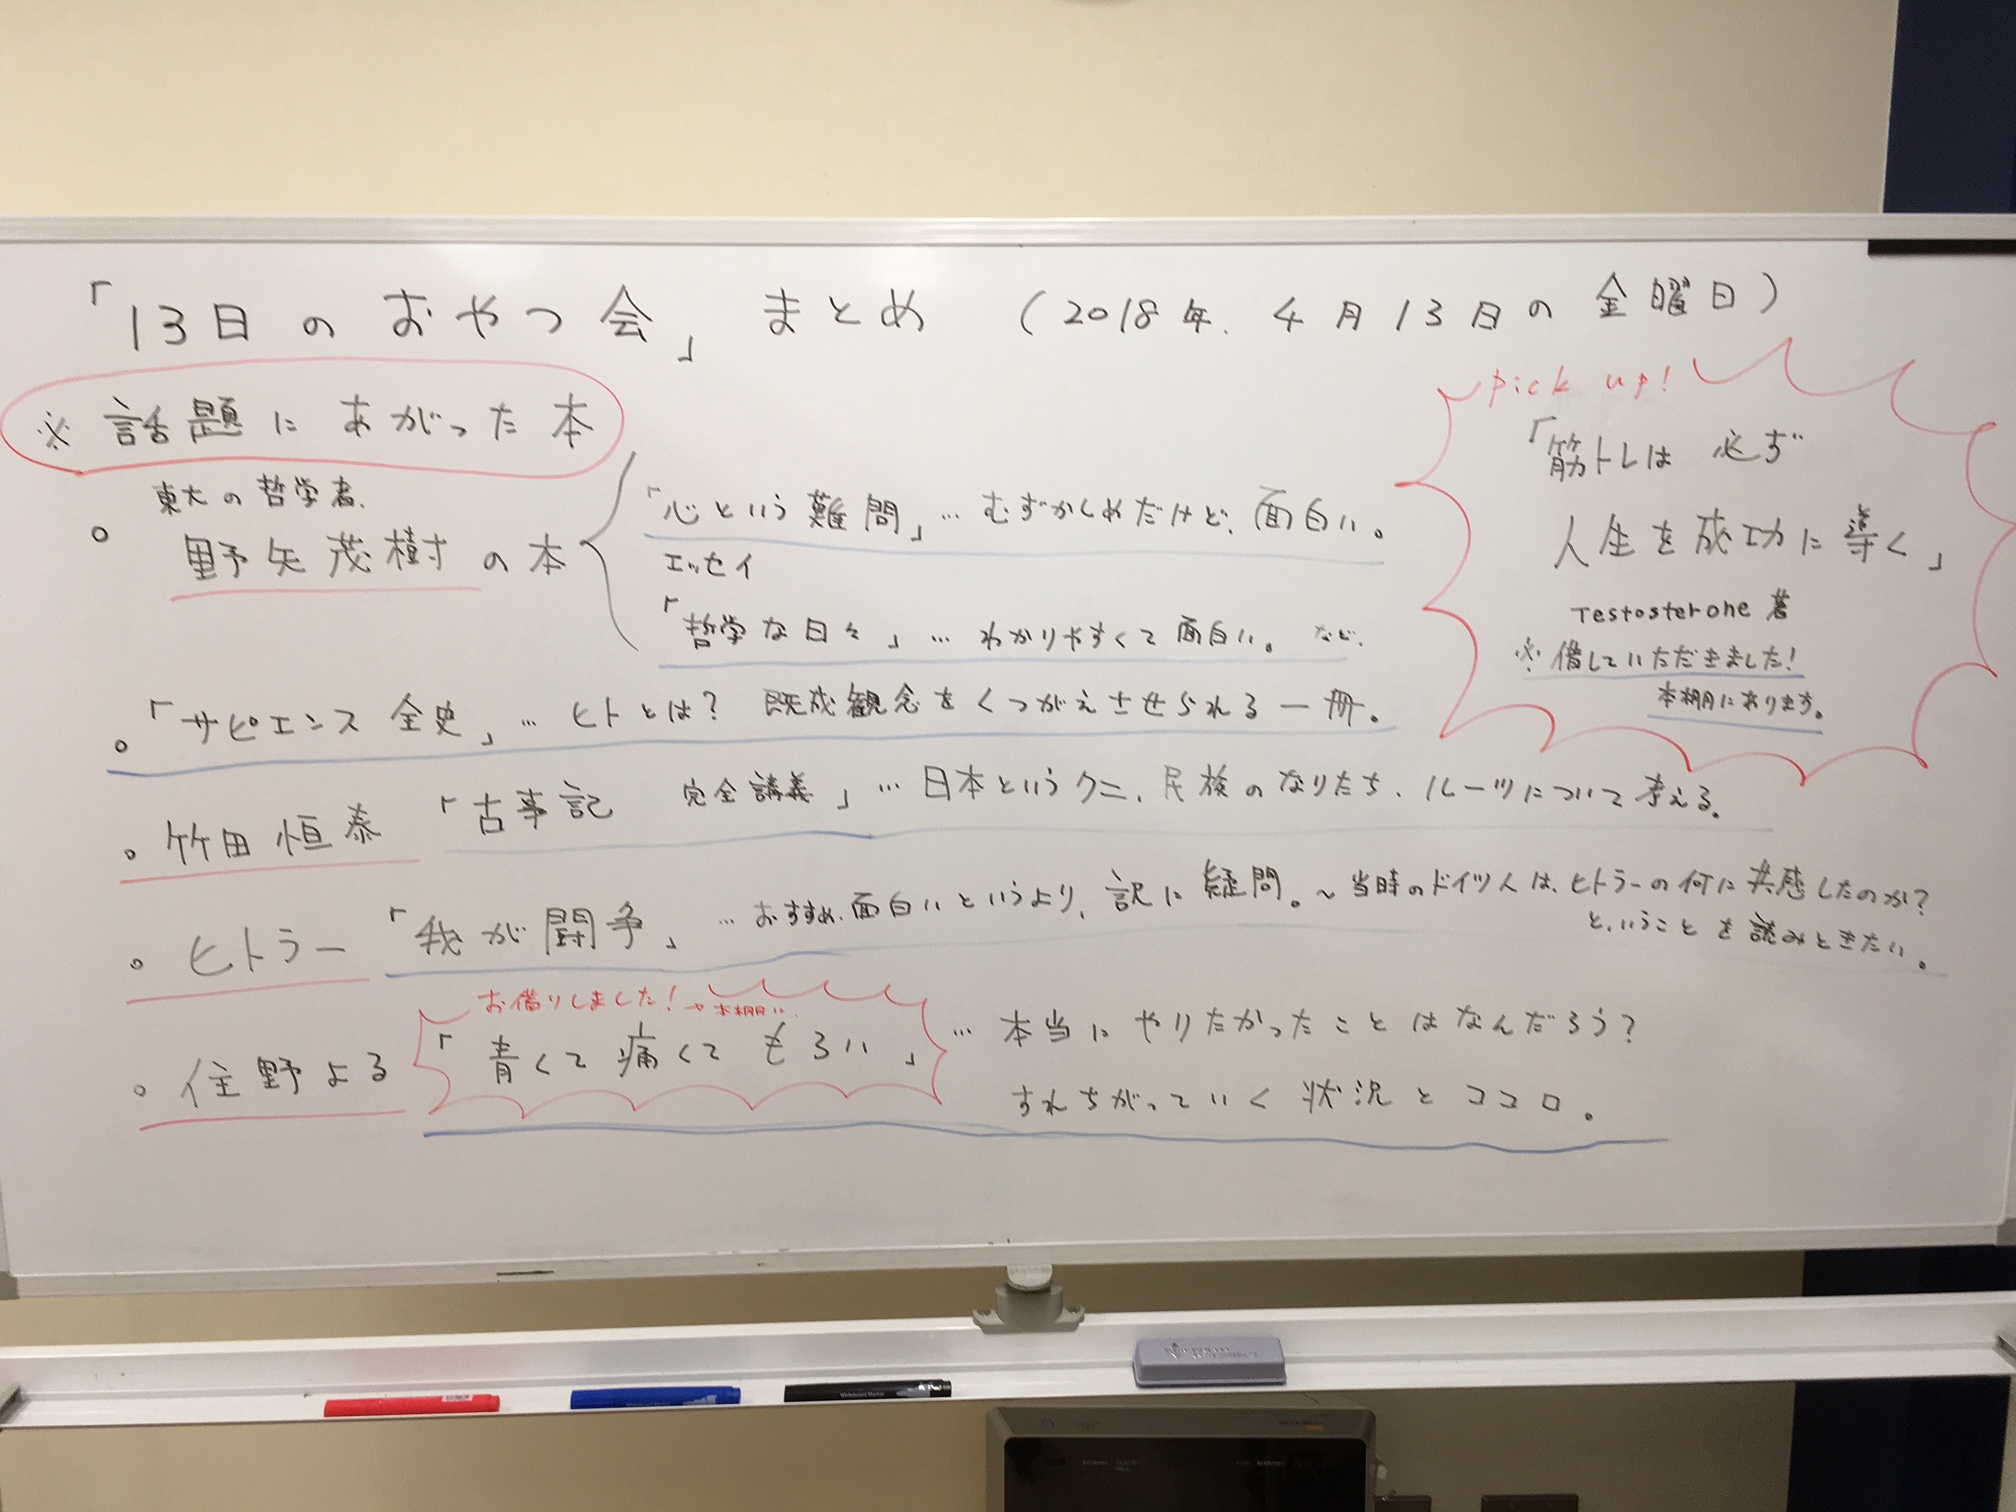 「13日のおやつ会」まとめ (2018年.4月13日の金曜日)
※話題にあがった本
東大の哲学者.
。野矢茂樹の本
「心という難問」…むずかしめだけど、面白い。
エッセイ
「哲学な日々」…わかりやすくて面白い。など.
。「サピエンス全史」…ヒトとは?既成観念をくつがえさせられる一冊。
。竹田恒泰「古事記 完全講義」…日本というクニ、民族のなりたち、ルーツについて考える。
。ヒトラー「我が闘争」…おすすめ、面白いというより、訳に疑問。~当時のドイツ人は、ヒトラーの何に共感したのか?
と、いうことを読みときたい。
お借りしました!→本棚に.
。住野よる「青くて痛くてもろい」…本当にやりたかったことはなんだろう?
すれちがっていく状況とココロ。
pick up!
「筋トレは必ず
人生を成功に導く」
Testosterone著
※借していただきました!
本棚にあります。
Whiteboard Marker
Whiteboard Marker